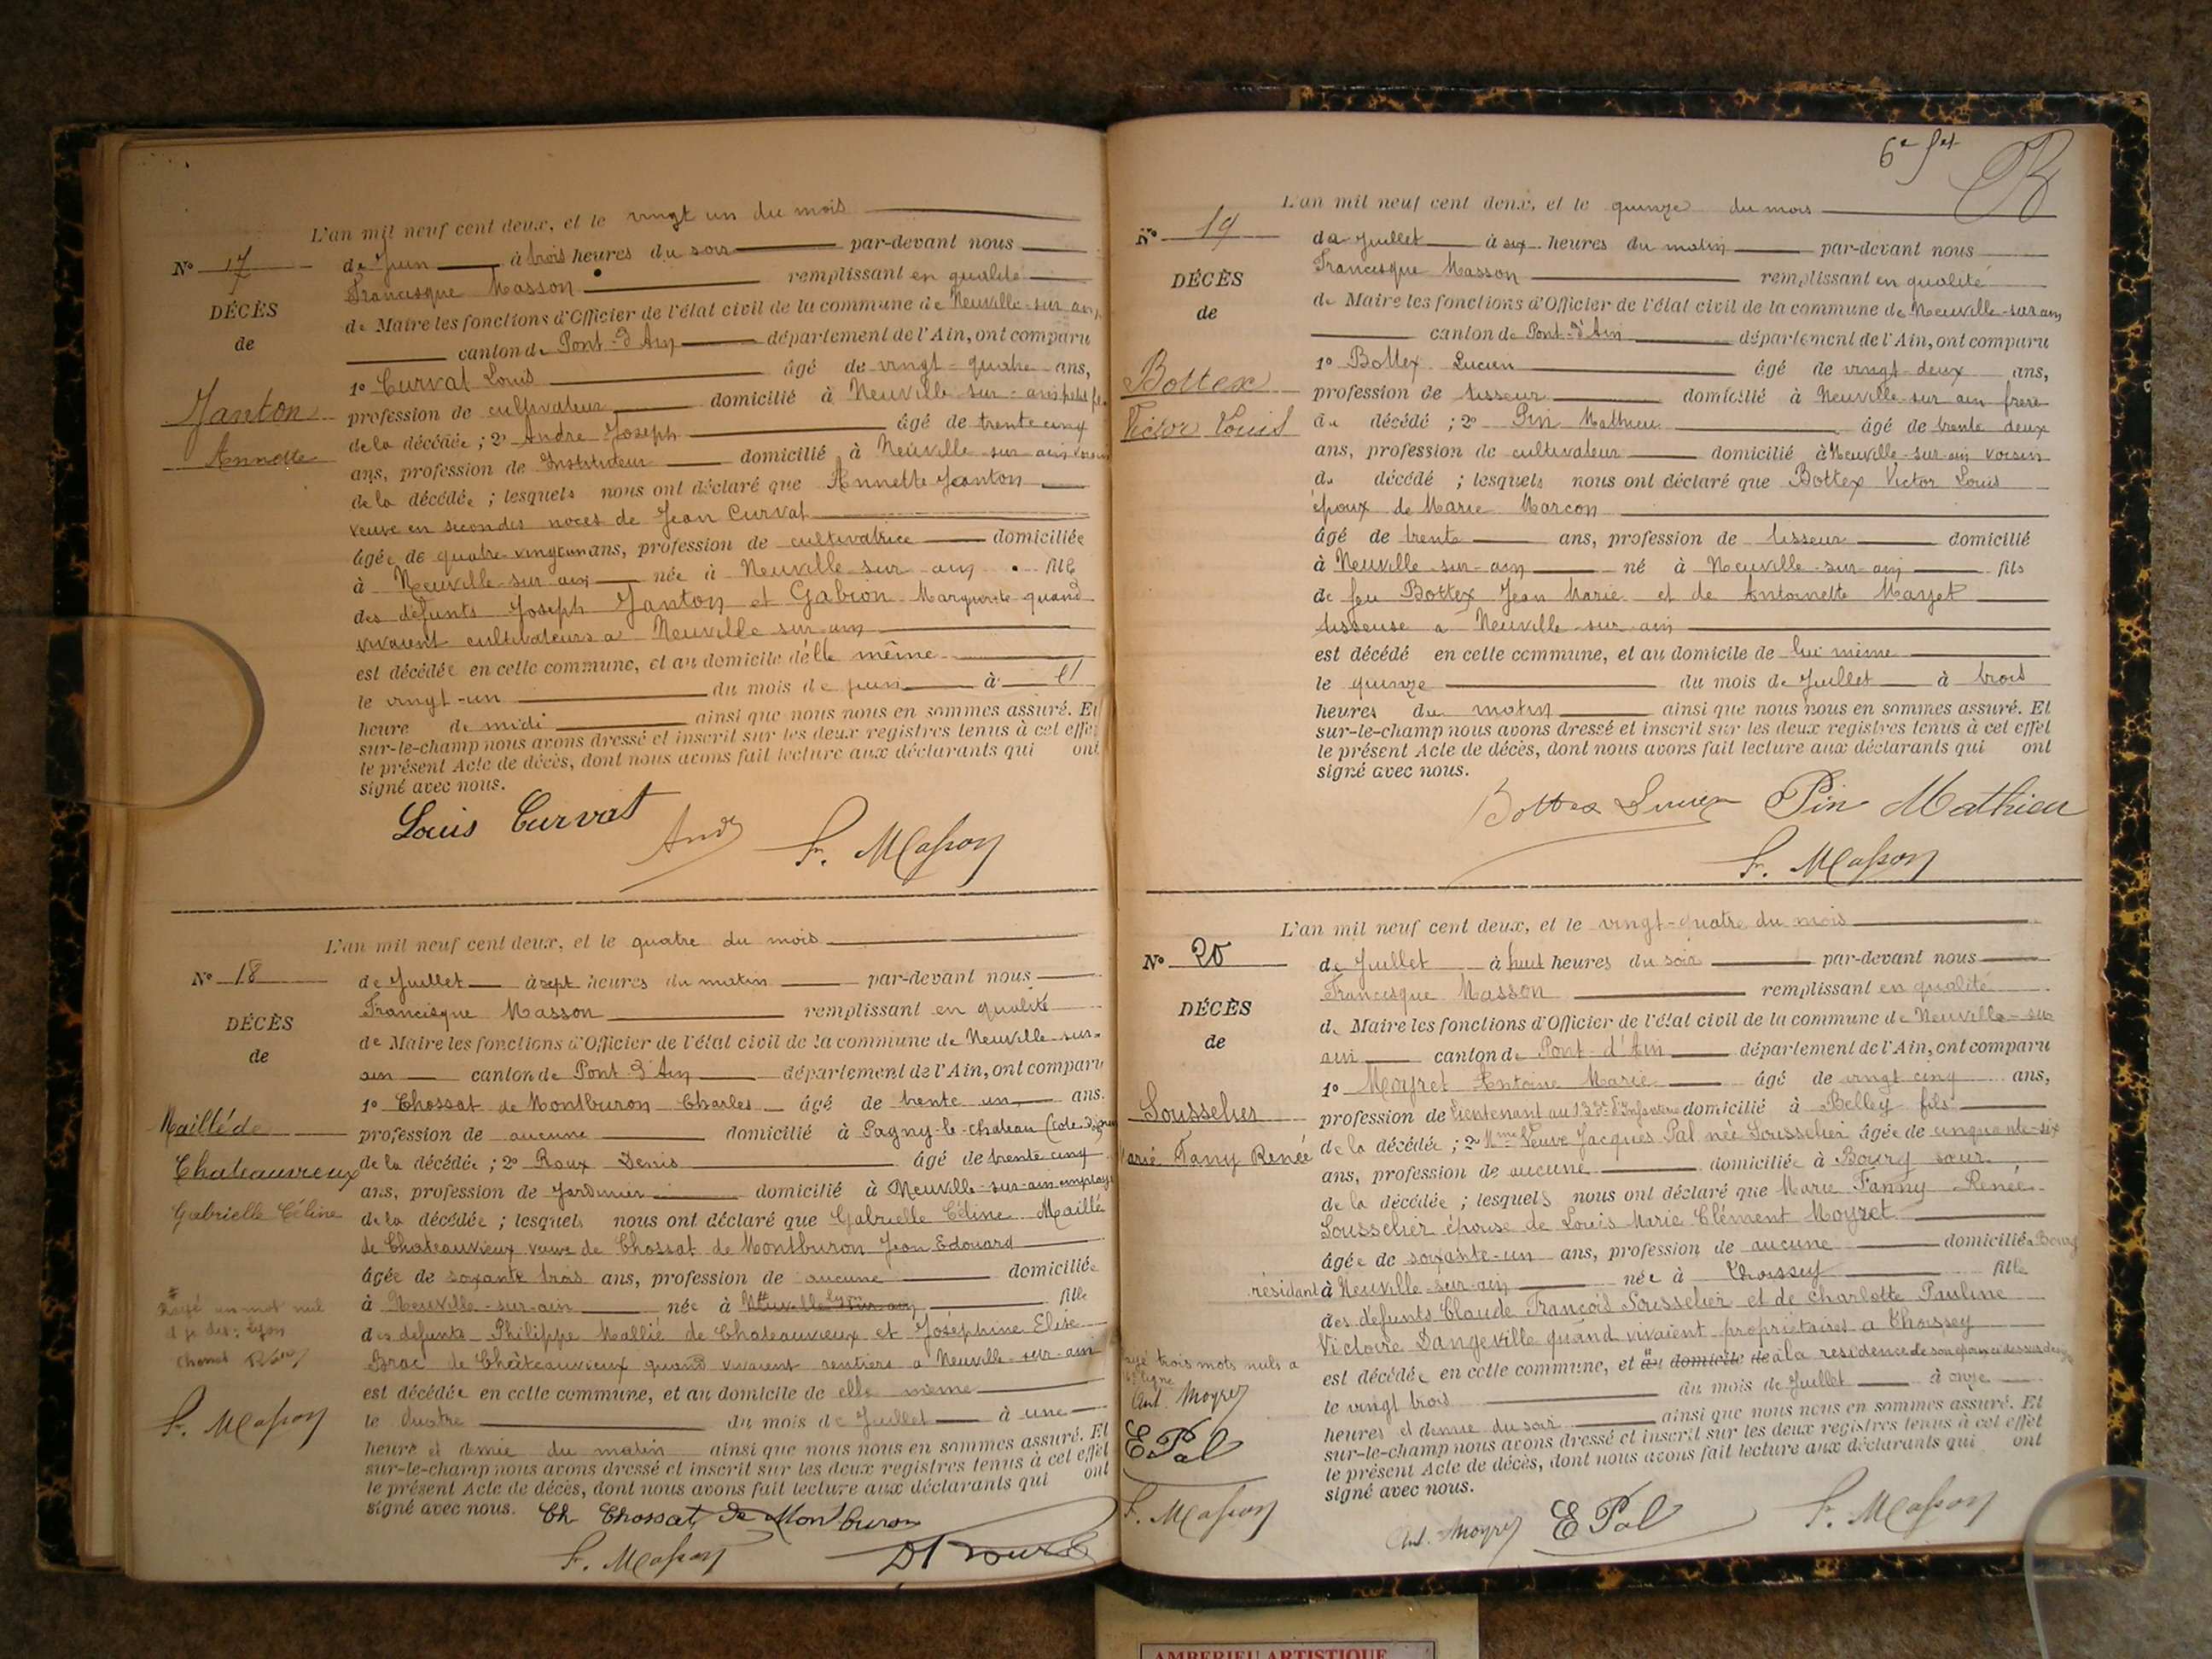 L'an mil neuf cent deux, et le vingt un du mois
N° 17
de Juin à trois heures du soir par-devant nous
Francisque Masson remplissant en qualité
DÉCÈS
de Maire les fonctions d'Officier de l'état civil de la commune de Neuville-sur ain,
de
canton de Pont-d'Ain département de l'Ain, ont comparu
1° Curvat Louis âgé de vingt-quatre ans,
Janton
profession de cultivateur domicilié à Neuville-sur-ain petit fils
Annette
de la décédée ; 2° André Joseph âgé de trente cinq
ans, profession de Instituteur domicilié à Neuville sur ain voisin
de la décédée ; lesquels nous ont déclaré que Annette Janton
veuve en secondes noces de Jean Curvat
âgée de quatre-vingt un ans, profession de cultivatrice domiciliée
à Neuville-sur ain née à Neuville-sur ain fille
des défunts Joseph Janton et Gabion Marguerite quand
vivaient cultivateurs a Neuville sur ain
est décédée en cette commune, et au domicile d'elle même
le vingt-un du mois de juin à
heure de midi ainsi que nous nous en sommes assuré. Et
sur-le-champ nous avons dressé et inscrit sur les deux registres tenus à cet effet
le présent Acte de décès, dont nous avons fait lecture aux déclarants qui ont
signé avec nous.
Louis Curvat
F. Masson
L'an mil neuf cent deux, et le quatre du mois
N° 18
de Juillet à sept heures du matin par-devant nous
Francisque Masson remplissant en qualité
DÉCÈS
de Maire les fonctions d'Officier de l'état civil de la commune de Neuville-sur-
de
ain canton de Pont d'Ain département de l'Ain, ont comparu
1° Chossat de Montburon Charles âgé de trente un ans.
Maillé de
profession de aucune domicilié à Pagny-le-chateau (cote d'or)
Chateauvieux
de la décédée ; 2° Roux Denis âgé de trente cinq
ans, profession de Jardinier domicilié à Neuville-sur-ain employé
Gabrielle Céline
de la décédée ; lesquels nous ont déclaré que Gabrielle Céline Maillé
de Chateauvieux veuve de Chossat de Montburon Jean Edouard
âgée de soxante trois ans, profession de aucune domiciliée
à Neuville-sur-ain née à Neuville sur ain Lyon fille
Rayé un mot nul
des défunts Philippe Mallié de Chateauvieux et Joséphine Elise
Brac de Châteauvieux quand vivaient rentiers a Neuville-sur-ain
est décédée en cette commune, et au domicile de elle même
F. Masson
le Quatre du mois de Juillet à une
heure et demie du matin ainsi que nous nous en sommes assuré. Et
sur-le-champ nous avons dressé et inscrit sur les deux registres tenus à cet effet
le présent Acte de décès, dont nous avons fait lecture aux déclarants qui ont
signé avec nous. Ch Chossat de Montburon
F. Masson
6e fet
L'an mil neuf cent deux, et le quinze du mois
N° 19
de Juillet à six heures du matin par-devant nous
Francisque Masson remplissant en qualité
DÉCÈS
de Maire les fonctions d'Officier de l'état civil de la commune de Neuville-sur ain
de
canton de Pont-d'Ain département de l'Ain, ont comparu
1° Bottex Lucien âgé de vingt-deux ans,
Bottex
profession de tisseur domicilié à Neuville-sur ain frere
Victor Louis
du décédé ; 2° Pin Mathieu âgé de trente deux
ans, profession de cultivateur domicilié à Neuville-sur-ain voisin
du décédé ; lesquels nous ont déclaré que Bottex Victor Louis
époux de Marie Marcon
âgé de trente ans, profession de tisseur domicilié
à Neuville-sur-ain né à Neuville-sur-ain fils
de feu Bottex Jean Marie et de Antoinette Mayet
tisseuse a Neuville-sur-ain
est décédé en cette commune, et au domicile de lui même
le quinze du mois de Juillet à trois
heures du matin ainsi que nous nous en sommes assuré. Et
sur-le-champ nous avons dressé et inscrit sur les deux registres tenus à cet effet
le présent Acte de décès, dont nous avons fait lecture aux déclarants qui ont
signé avec nous.
Bottex Lucien Pin Mathieu
F. Masson
L'an mil neuf cent deux, et le vingt-quatre du mois
N° 20
de Juillet à huit heures du soir par-devant nous
Francisque Masson remplissant en qualité
DÉCÈS
de Maire les fonctions d'Officier de l'état civil de la commune de Neuville-sur
de
ain canton de Pont-d'Ain département de l'Ain, ont comparu
1° Moyret Antoine Marie âgé de vingt cinq ans,
Sousselier
profession de Lieutenant au 133e d'Infanterie domicilié à Belley fils
Marie Fany Renée
de la décédée ; 2° Mme Veuve Jacques Pal née Sousselier âgée de cinquante-six
ans, profession de aucune domiciliée à Bourg sœur
de la décédée ; lesquels nous ont déclaré que Marie Fanny Renée
Sousselier épouse de Louis Marie Clément Moyret
âgée de soixante-un ans, profession de aucune domiciliée Bourg
résidant à Neuville-sur-ain née à Thoissey fille
des défunts Claude François Sousselier et de Charlotte Pauline
Victoire Dangeville quand vivaient propriétaires a Thoissey
Rayé trois mots nuls a
est décédée en cette commune, et au domicile de à la residence de son époux ci dessus
ligne
Ant. Moyret
le vingt trois du mois de Juillet à onze
E Pal
heures et demie du soir ainsi que nous nous en sommes assuré. Et
sur-le-champ nous avons dressé et inscrit sur les deux registres tenus à cet effet
le présent Acte de décès, dont nous avons fait lecture aux déclarants qui ont
F. Masson
signé avec nous.
Ant. Moyret E Pal F. Masson
AMBERIEU ARTISTIQUE